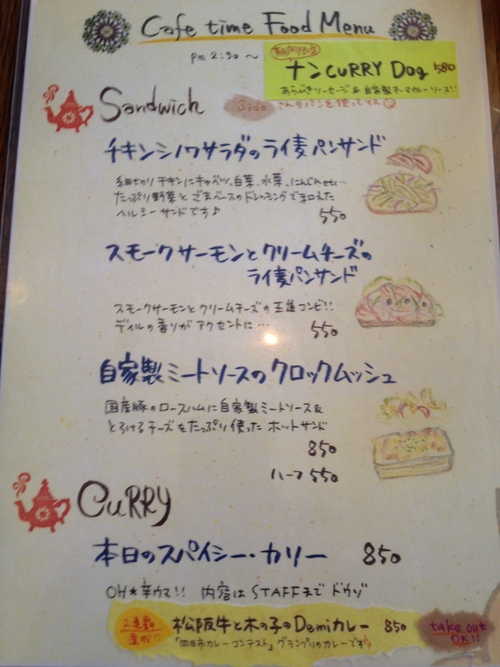 Cafe time Food Menu
pm 2:30 ~
期間限定
ナンCURRY Dog 580
あらびきソーセージ & 自家製キーマカレーソース!!
Sandwich
Side さんのパンを使ってます
チキンシノワサラダのライ麦パンサンド
細切りチキンにキャベツ、白菜、水菜、にんじんetc...
たっぷり野菜とごまベースのドレッシングで和えた
ヘルシーサンドです♪
550
スモークサーモンとクリームチーズの
ライ麦パンサンド
スモークサーモンとクリームチーズの王道コンビ!!
ディルの香りがアクセントに…
550
自家製ミートソースのクロックムッシュ
国産豚のロースハムに自家製ミートソース&
とろけるチーズをたっぷり使ったホットサンド
850
ハーフ 550
CURRY
本日のスパイシー・カリー 850
OH*辛ウマ!! 内容はSTAFFまでドウゾ
松阪牛と木の子のDemiカレー 850
「四日市カレーコンテスト」グランプリのカレーです
take out
OK!!